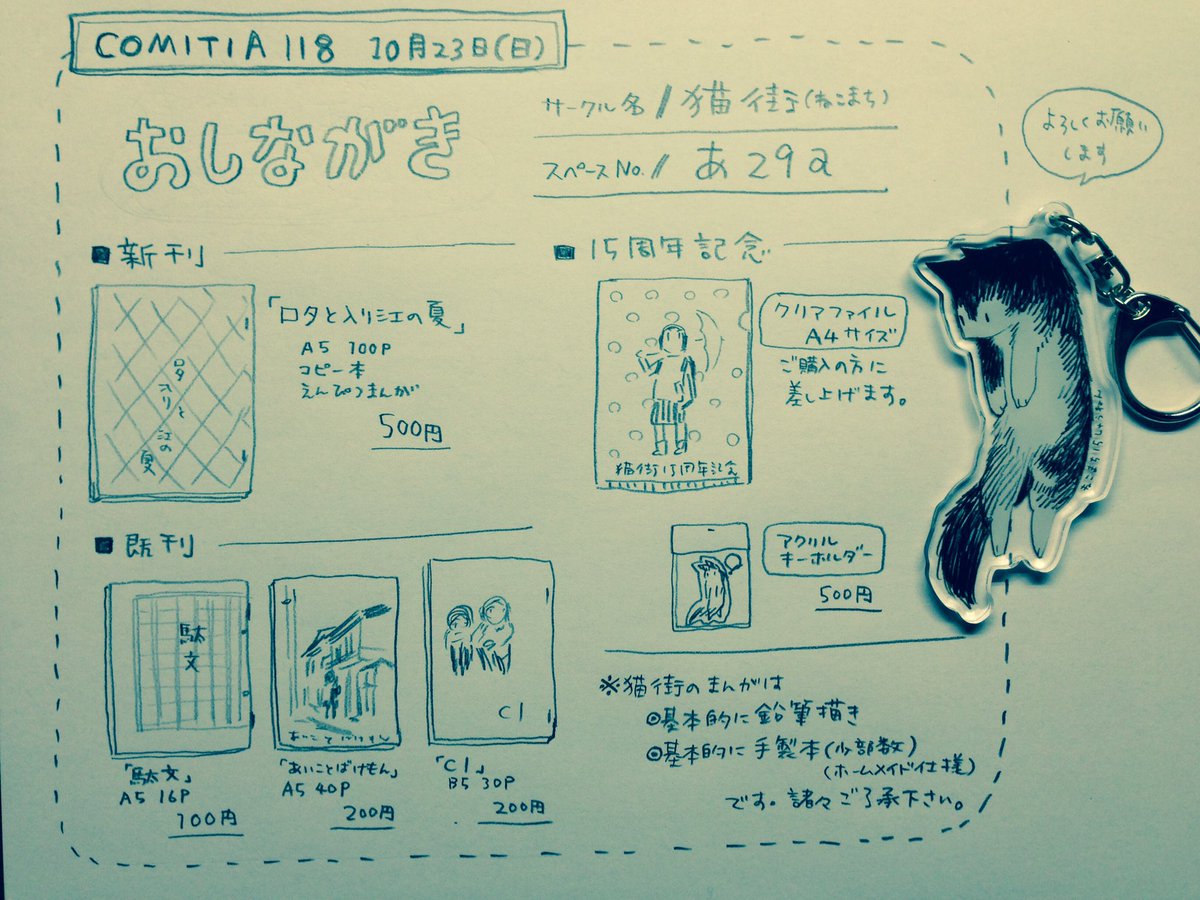 COMITIA 118 10月23日(日)
おしながき
サークル名 // 猫街(ねこまち)
スペースNo. // あ29a
よろしくお願い
します
■新刊
ロタと
入り江の
夏
「ロタと入り江の夏」
A5 100P
コピー本
えんぴつまんが
500円
■15周年記念
猫街15周年記念
クリアファイル
A4サイズ
ご購入の方に
差し上げます。
アクリル
キーホルダー
500円
ねこまち15しゅうねん
■既刊
駄文
「駄文」
A5 16P
100円
あいことばけもん
「あいことばけもん」
A5 40P
200円
C1
「C1」
B5 30P
200円
※猫街のまんがは
◎基本的に鉛筆描き
◎基本的に手製本(少部数)
(ホームメイド仕様)
です。諸々ご了承下さい。